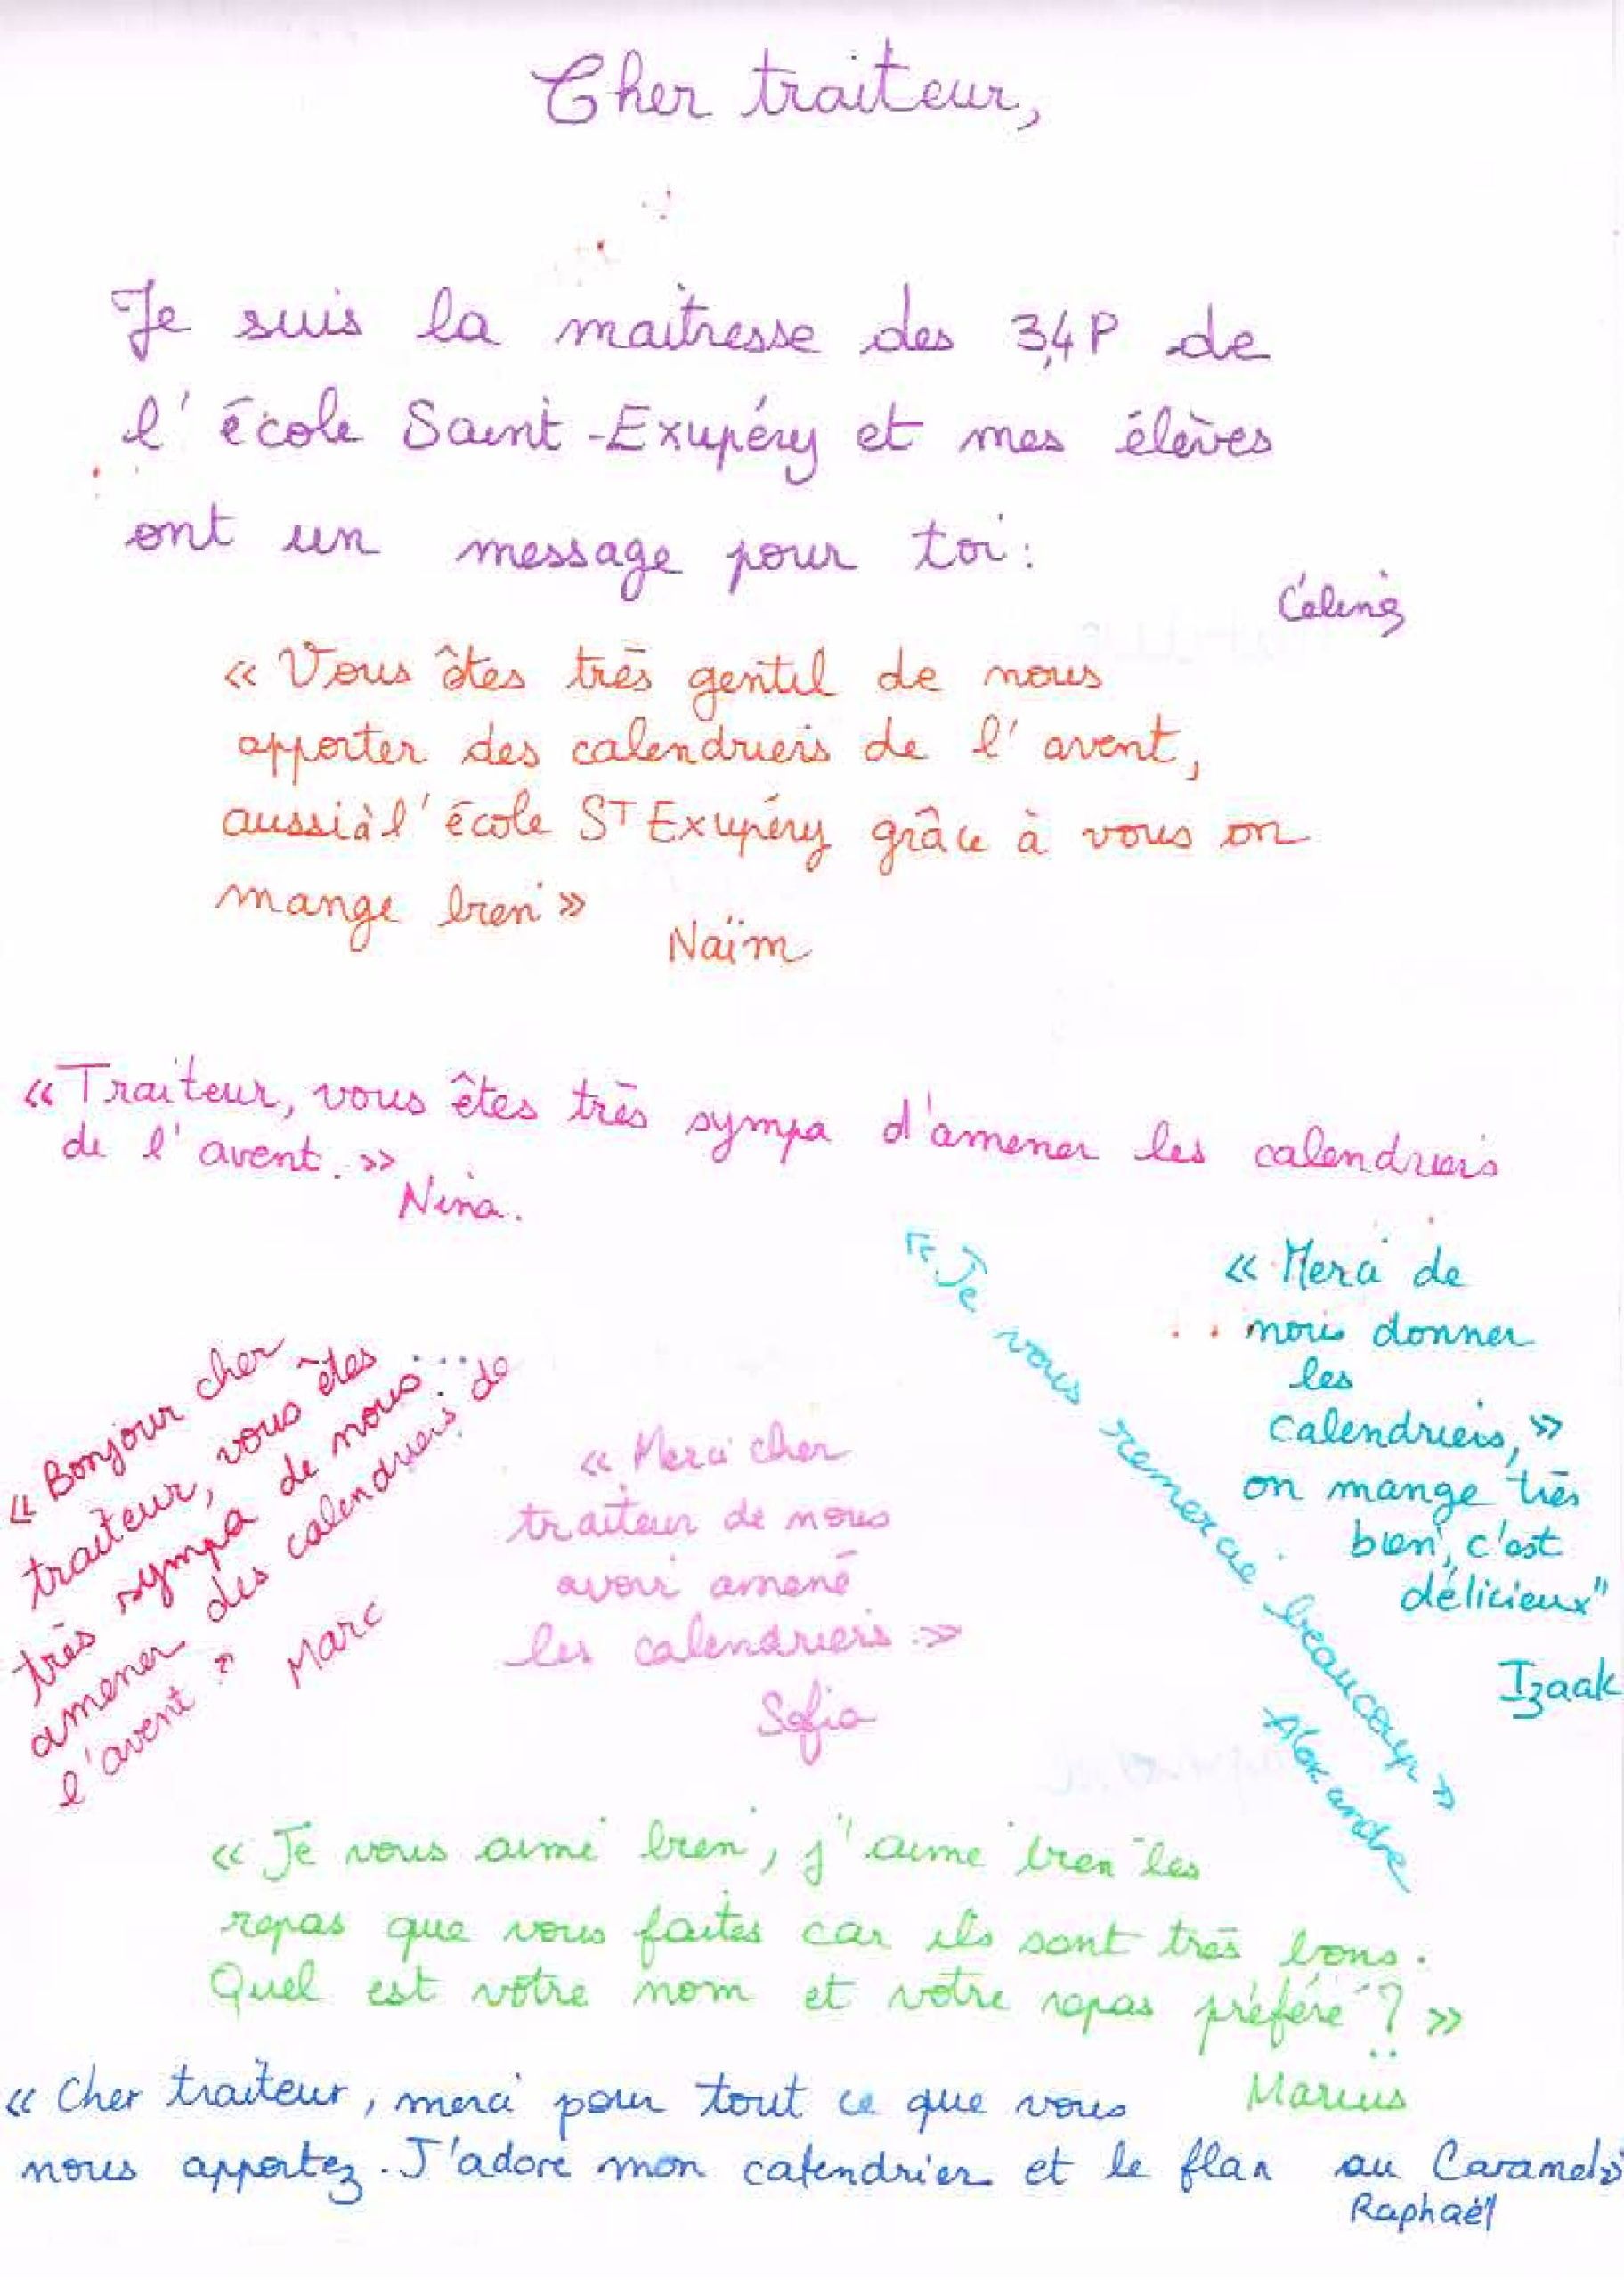 Cher traiteur,
Je suis la maitresse des 3,4P de
l'école Saint-Exupéry et mes élèves
ont un message pour toi :
Céline
« Vous êtes très gentil de nous
apporter des calendriers de l'avent,
aussi à l'école ST Exupéry grâce à vous on
mange bien »
Naïm
« Traiteur, vous êtes très sympa d'amener les calendriers
de l'avent. »
Nina.
« Bonjour cher
traiteur, vous êtes
très sympa de nous
amener des calendriers de
l'avent »
Marc
« Merci cher
traiteur de nous
avoir amené
les calendriers »
Sofia
« Je vous remercie beaucoup »
Alexandre
« Merci de
nous donner
les
calendriers, »
on mange très
bien, c'est
délicieux"
Izaak
« Je vous aime bien, j'aime bien les
repas que vous faites car ils sont très bons.
Quel est votre nom et votre repas préféré ? »
Marius
« Cher traiteur, merci pour tout ce que vous
nous apportez. J'adore mon calendrier et le flan au Caramel »
Raphaël